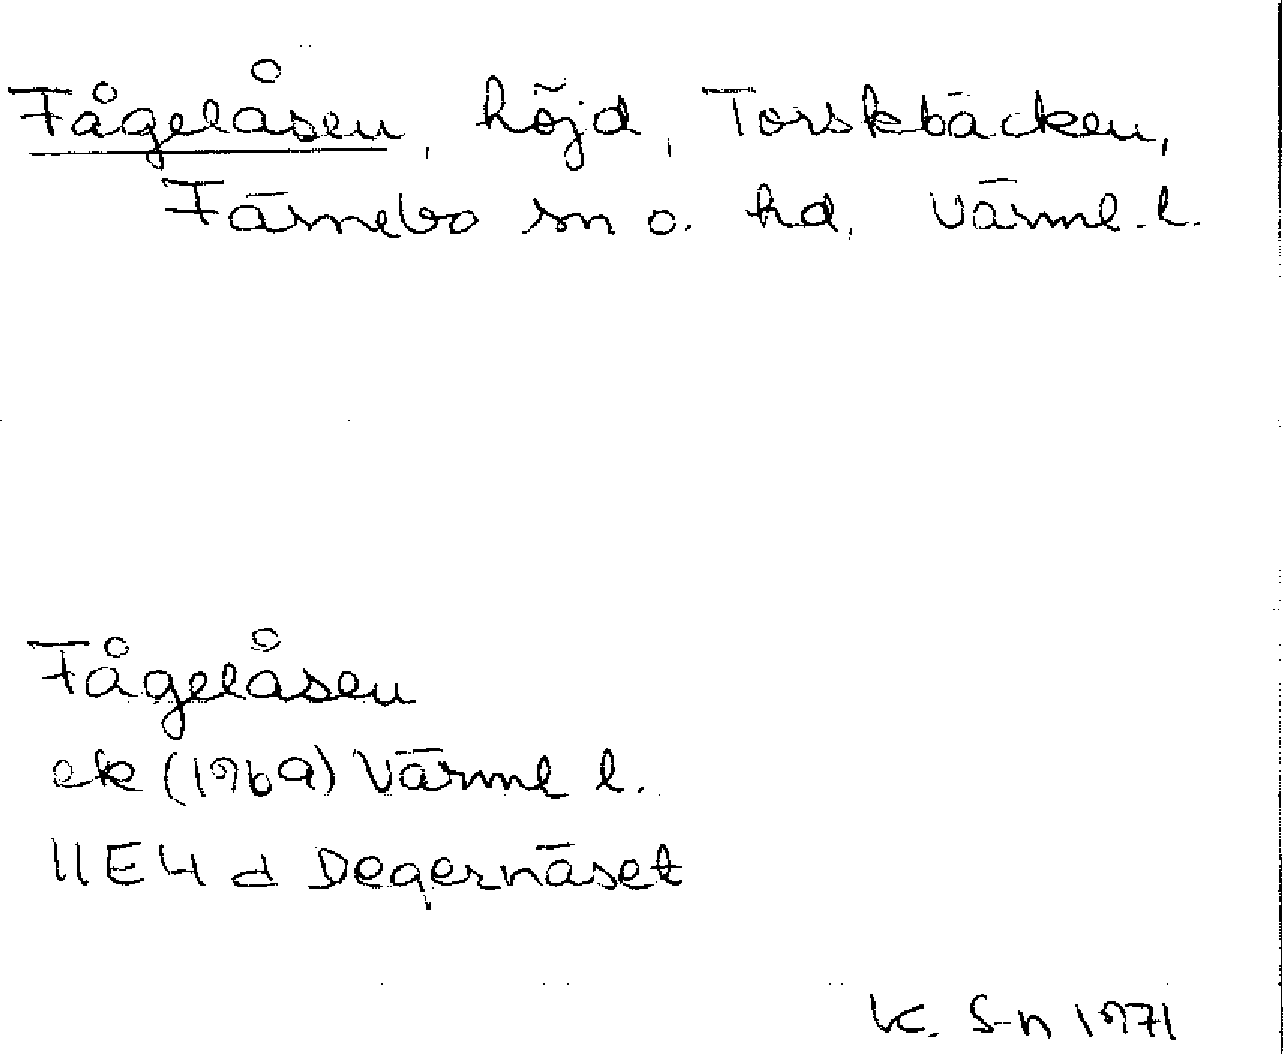 Fågelåsen, höjd, Torskbäcken,
Färnebo sn o. hd, Värml. l.
Fågelåsen
ek (1969) Värml l.
11E4d Degernäset
K. S-n 1971